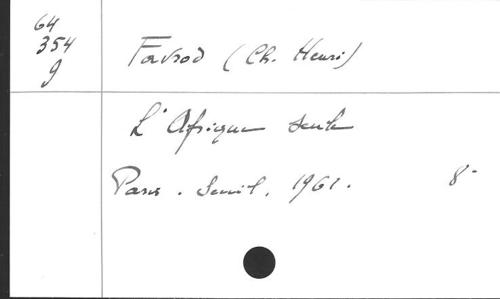 64
354
9
Favrod (Ch. Henri)
L'Afrique seule
Paris. Seuil. 1961. 8-